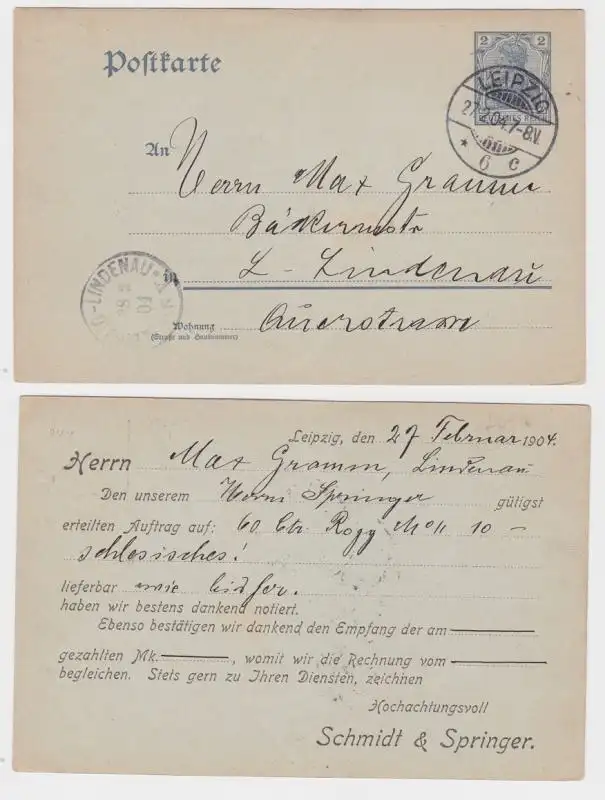 Postkarte
2 2
DEUTSCHES REICH
LEIPZIG
27.2.04.7-8V.
* 6 c
An
Herrn Max Gramm
Bäckermstr
in
L-Lindenau
Auerstrasse
LINDENAU
28 2 04
Wohnung
(Straße und Hausnummer)
Leipzig, den 27 Februar 1904.
Herrn Max Gramm, Lindenau
Den unserem Herrn Springer gütigst
erteilten Auftrag auf: 60 Ctr. Rogg 10 –
schlesisches!
lieferbar wie bisher.
haben wir bestens dankend notiert.
Ebenso bestätigen wir dankend den Empfang der am
gezahlten Mk. , womit wir die Rechnung vom
begleichen. Stets gern zu Ihren Diensten, zeichnen
Hochachtungsvoll
Schmidt & Springer.